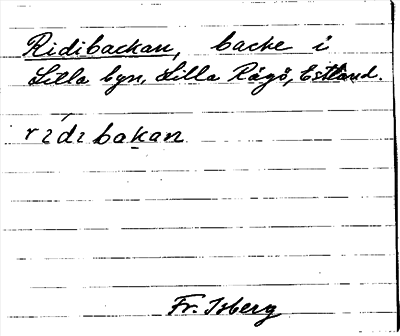 Ridibackan, backe i
Lilla byn, Lilla Rågö, Estland.
rídibakan
Fr. Isberg